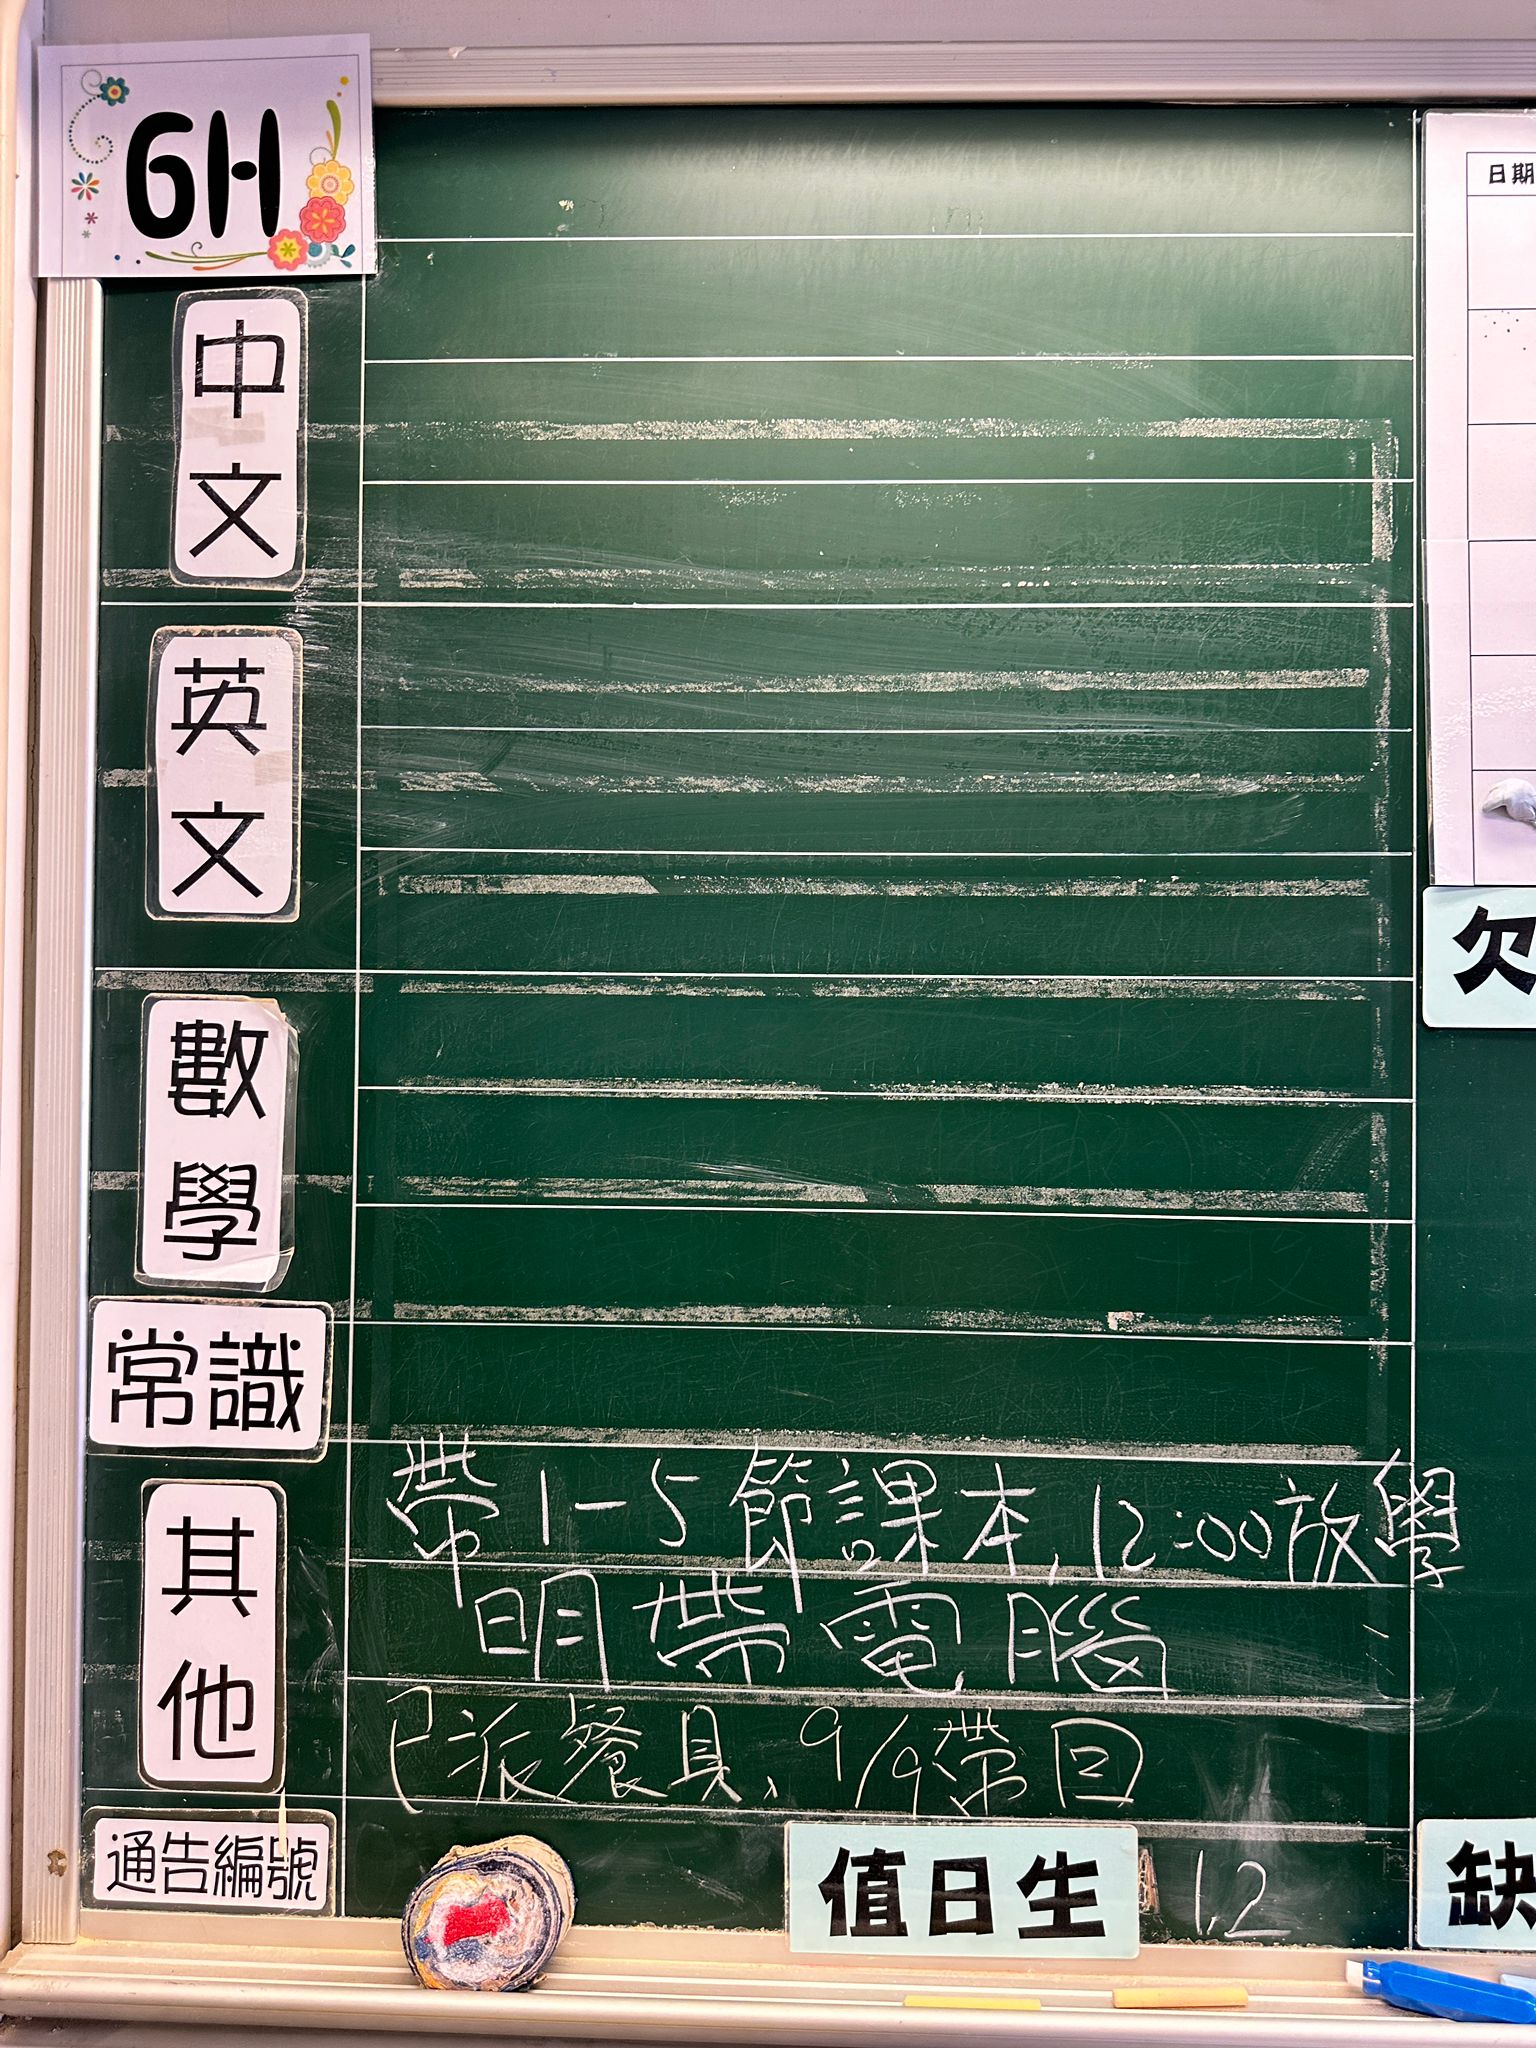 6H
日期
中文
英文
數學
常識
其他
帶1-5節課本,12:00放學
明帶電腦
已派餐具、9/9帶回
通告編號
值日生 1,2
欠
缺